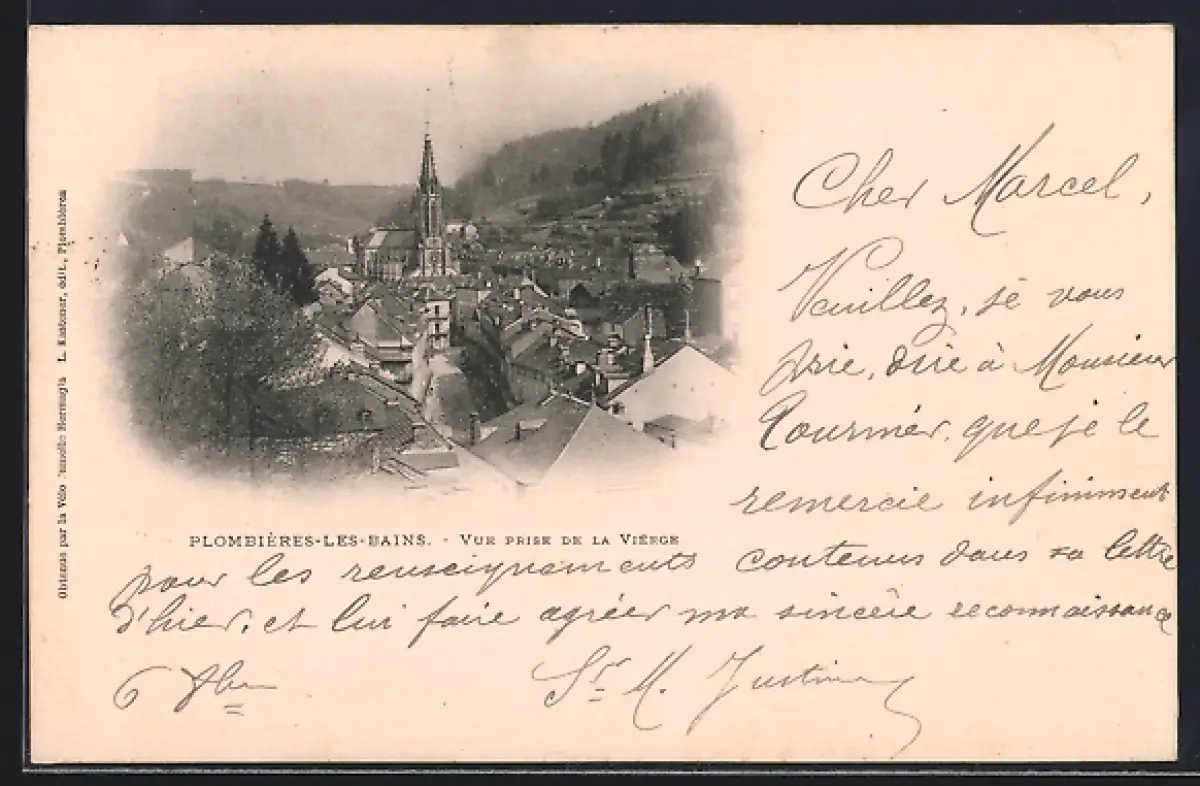 Cher Marcel,
Veuillez, je vous
prie, dire à Monsieur
Tournier, que je le
remercie infiniment
PLOMBIÈRES-LES-BAINS. - VUE PRISE DE LA VIÉRGE
pour les renseignements contenus dans sa lettre
d'hier, et lui faire agréer ma sincère reconnaissance
6 Xbre
Sr M. Justine
Obtenue par la Vélo Jumelle Hermagis L. Kastener, édit., Plombières